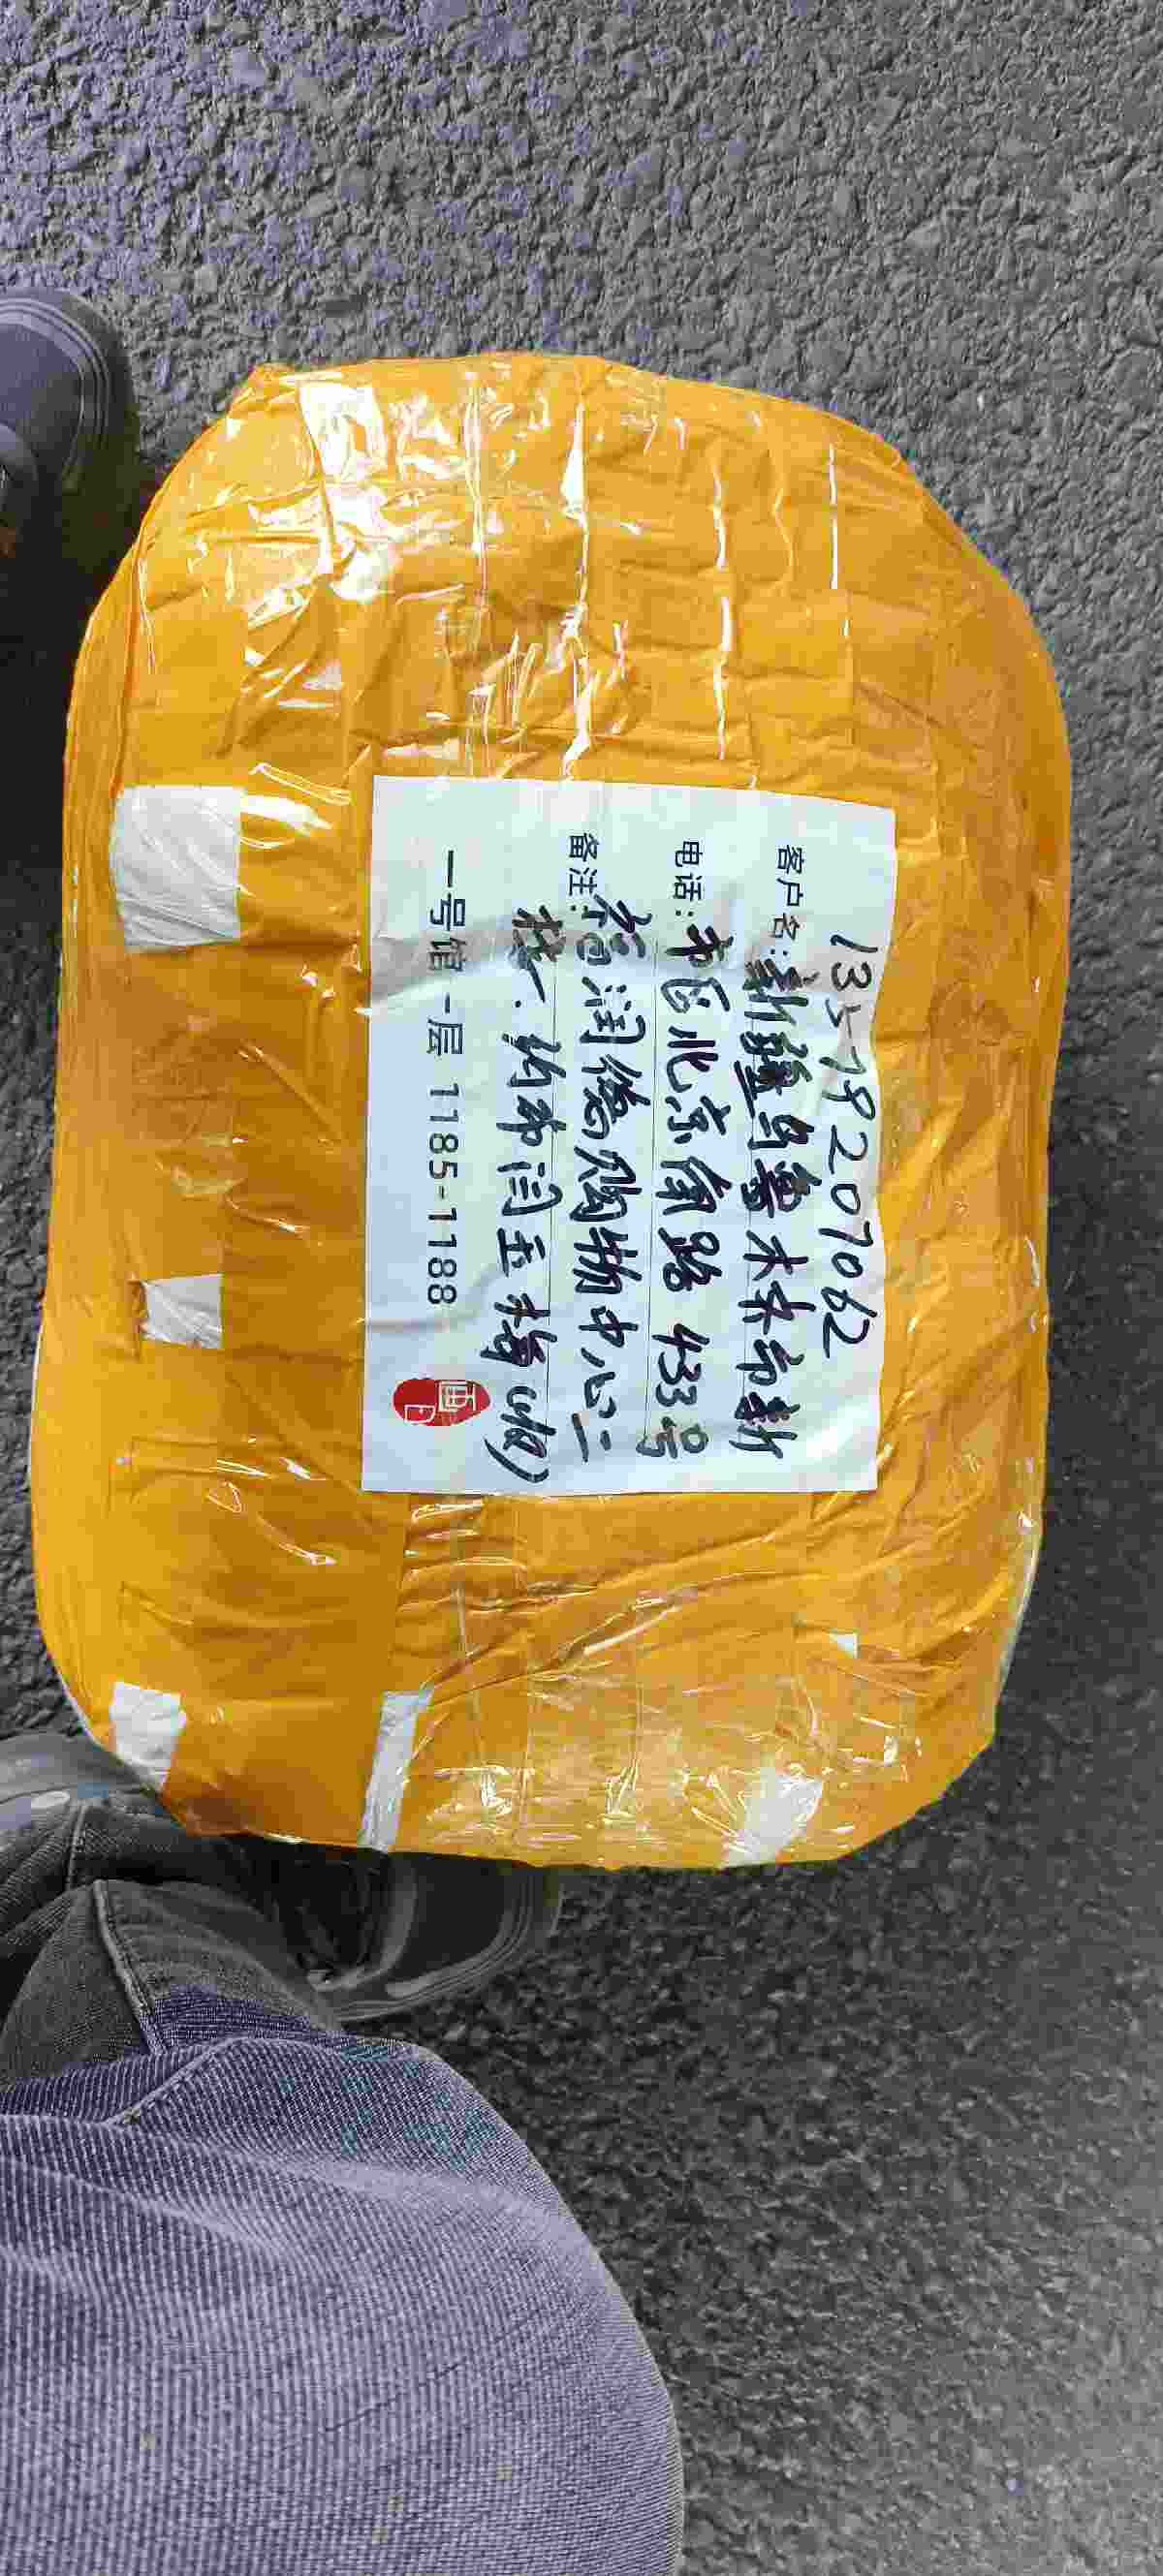 13579207062
客户名:新疆乌鲁木齐市新
电话:市区北京南路433号
备注:福润德购物中心二
楼. 纱布闫玉梅(收)
一号馆一层 1185-1188